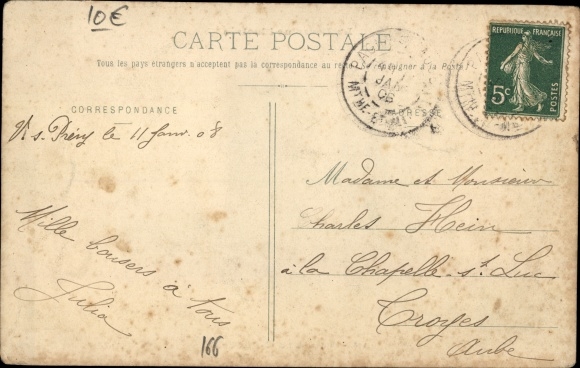 10€
CARTE POSTALE
Tous les pays étrangers n'acceptent pas la correspondance au recto
à la Poste
RÉPUBLIQUE FRANÇAISE
5c
POSTES
CORRESPONDANCE
JAN
08
ADRESSE
V s. Frény le 11 Janv. 08
Mille baisers à tous
Julia
166
Madame et Monsieur
Charles Hein
à la Chapelle-St Luc
Troyes
Aube